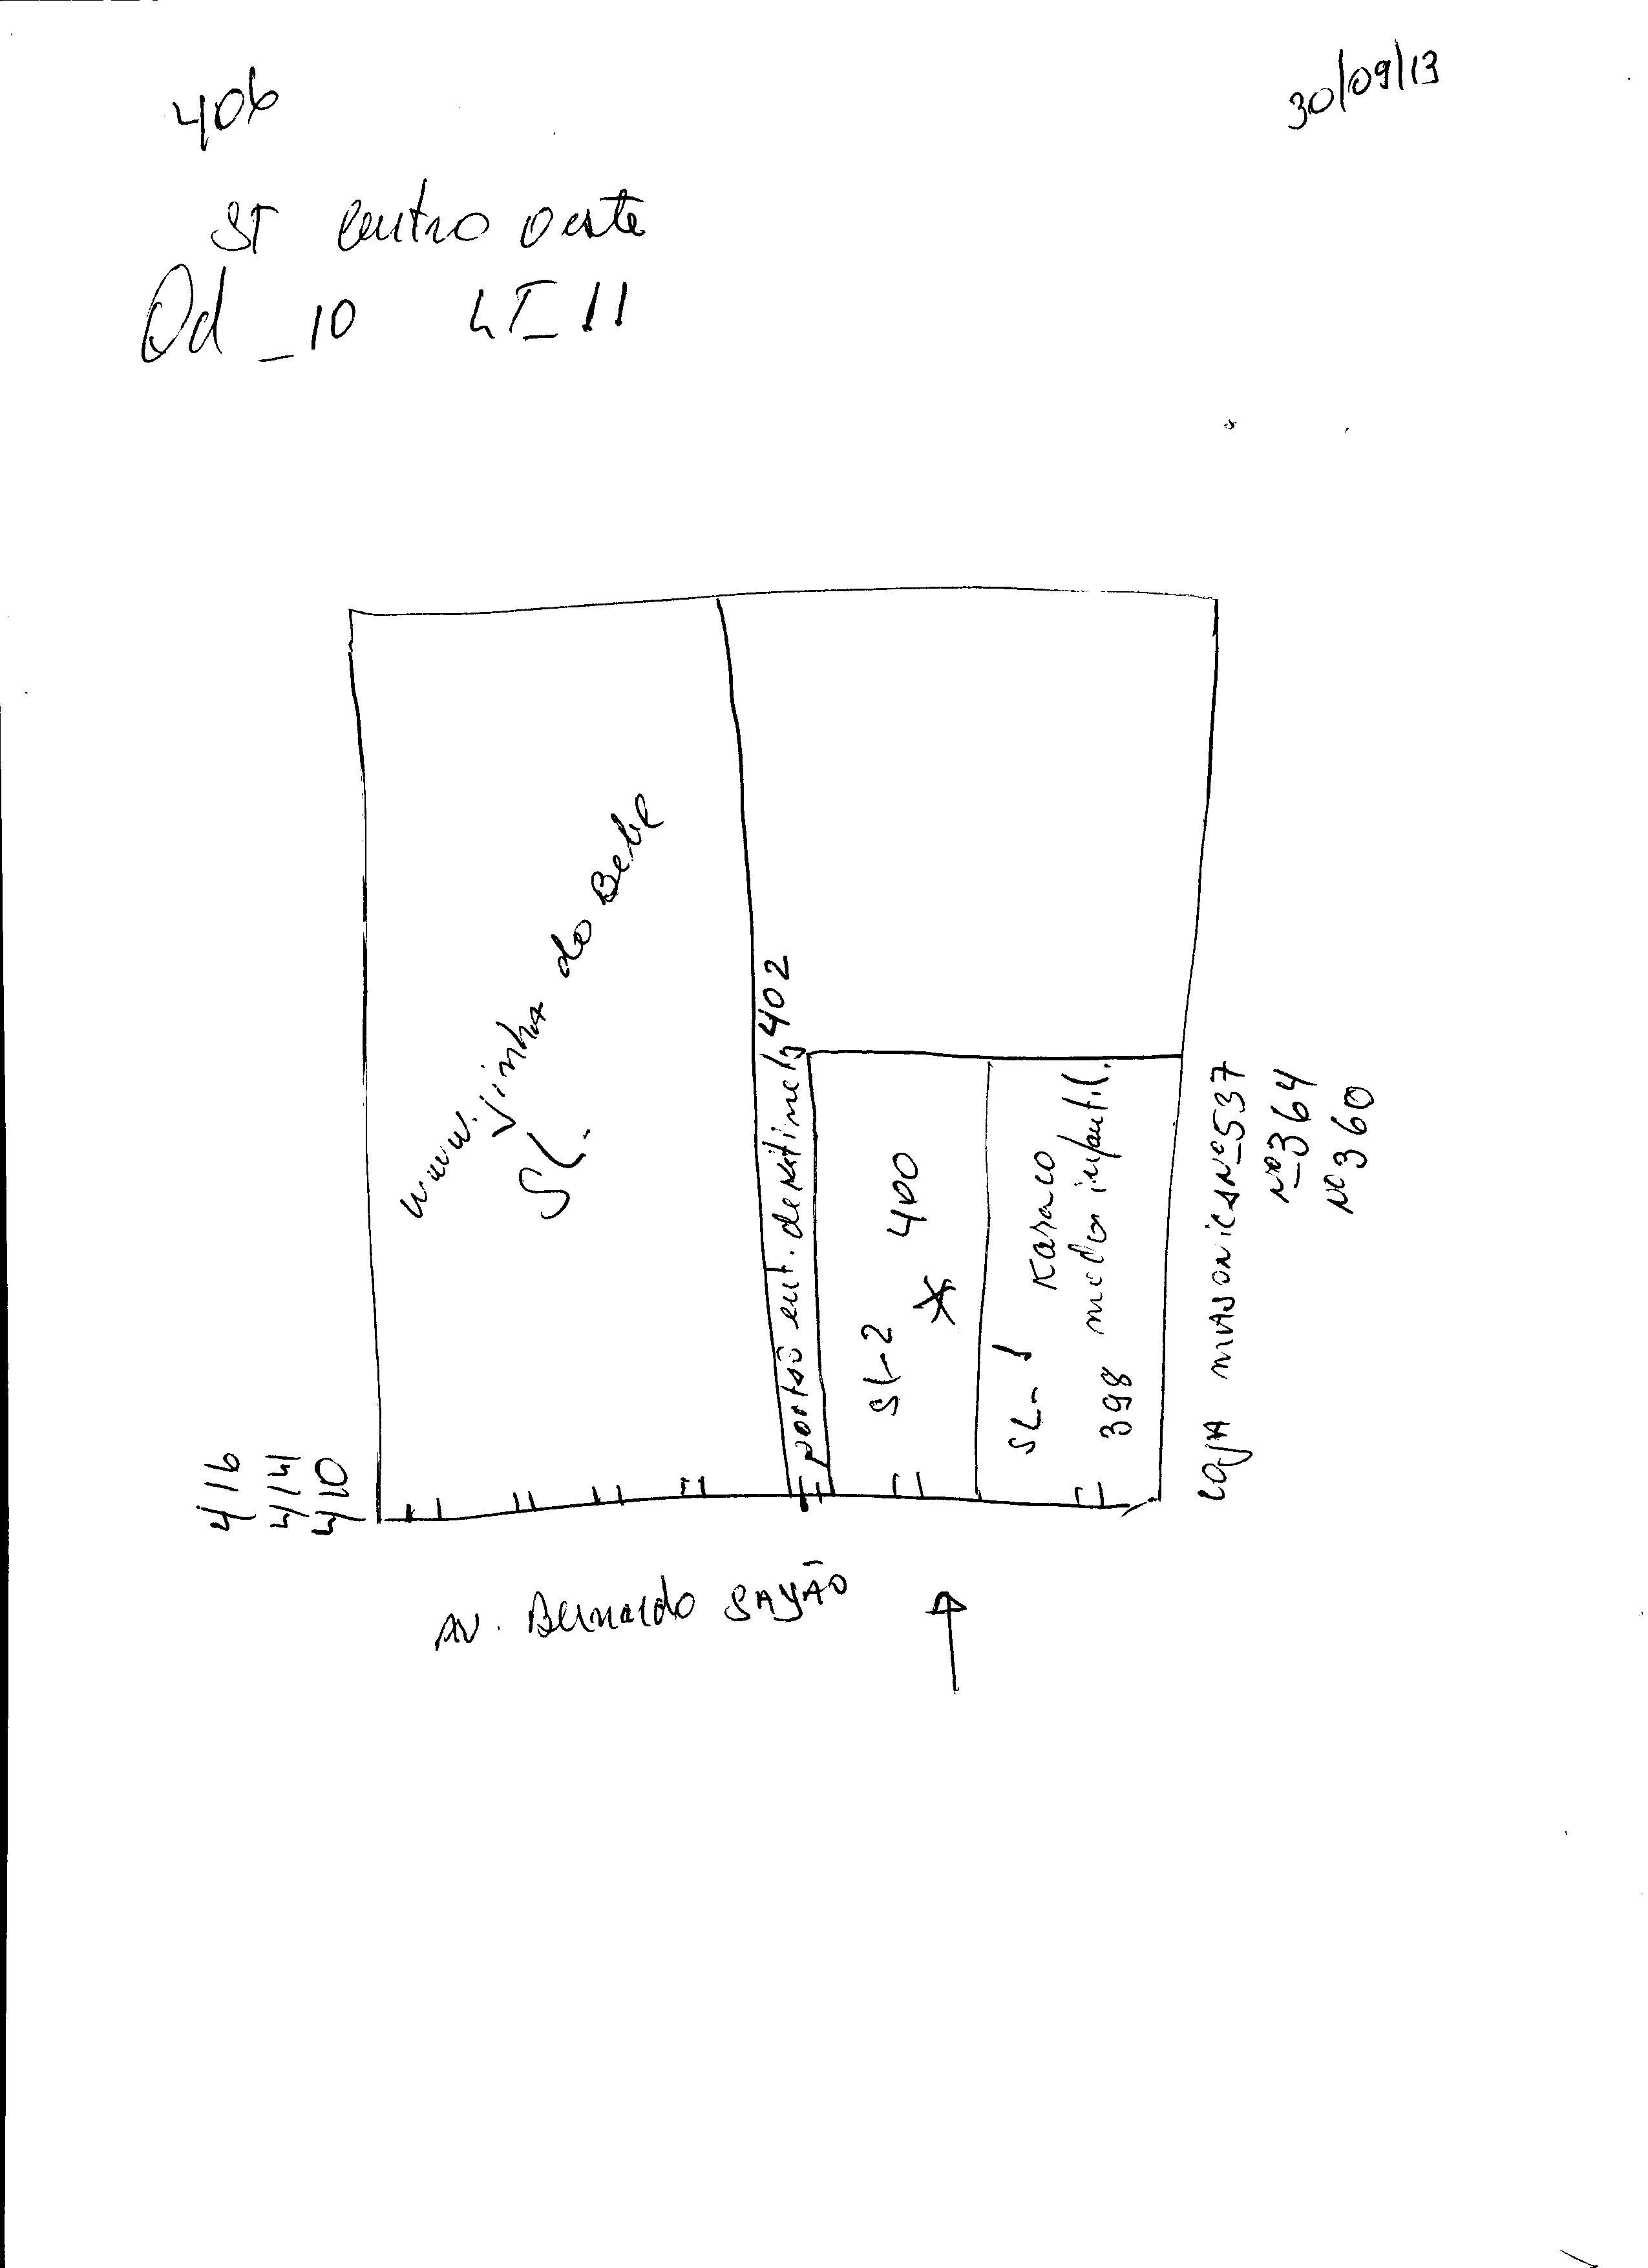 406
30/09/13
ST Centro Oeste
Qd_10 LT_11
www. Vinha do Bebe
SL.
402
portão ent.
SL-2 400
SL-1 Karaco
398 moda infantil.
LOJA MASONICA Nº 537
Nº 364
Nº 360
416
414
410
AV. Bernardo SAYÃO